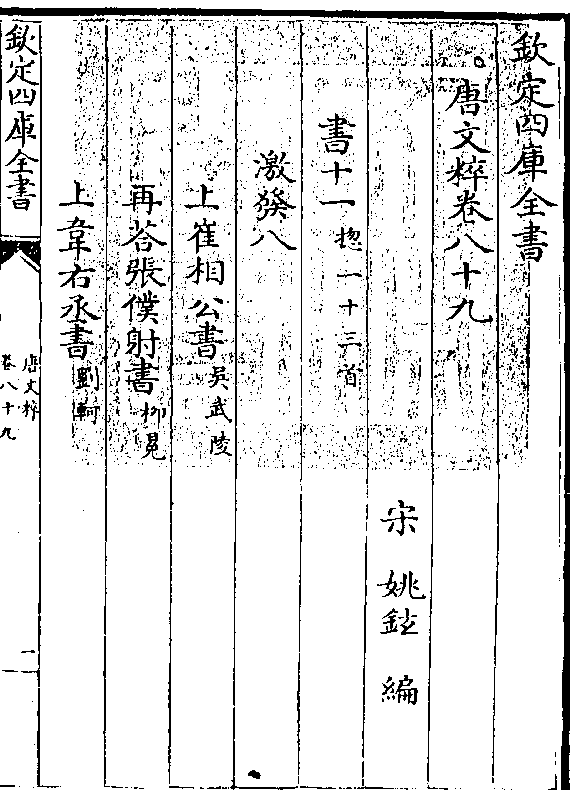 欽定四庫全書
唐文粹卷八十九
宋 姚鉉 編
書十一 揔一十三首
激發八
上崔相公書 吳武陵
再荅張僕射書 柳冕
上韋右丞書 劉軻
欽定四庫全書
唐文粹
卷八十九
一